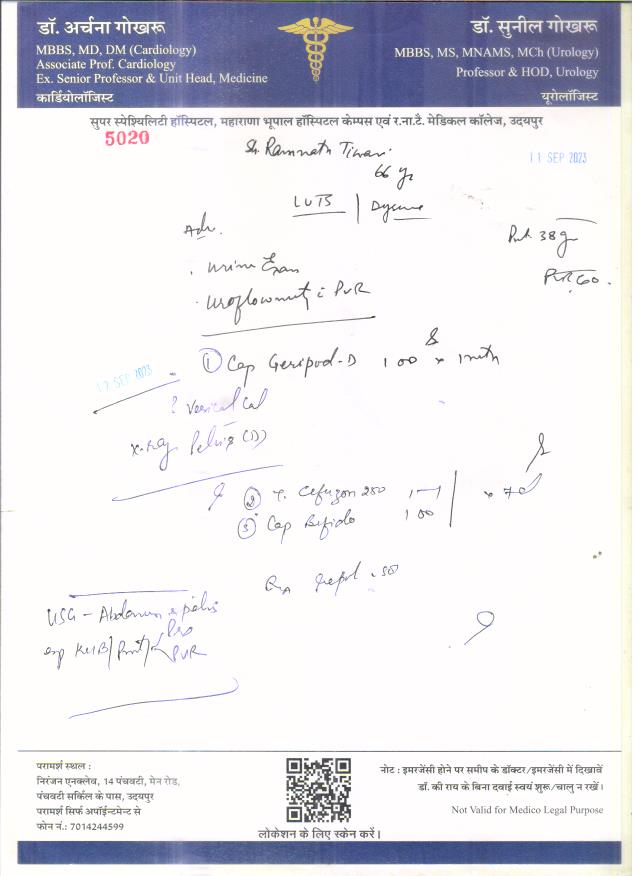 डॉ. अर्चना गोखरू
MBBS, MD, DM (Cardiology)
Associate Prof. Cardiology
Ex. Senior Professor & Unit Head, Medicine
कार्डियोलॉजिस्ट
डॉ. सुनील गोखरू
MBBS, MS, MNAMS, MCh (Urology)
Professor & HOD, Urology
यूरोलॉजिस्ट
सुपर स्पेश्यिलिटी हॉस्पिटल, महाराणा भूपाल हॉस्पिटल केम्पस एवं र.ना.टै. मेडिकल कॉलेज, उदयपुर
5020
Ramnath Tiwari
11 SEP 2023
66 yr
LUTS
Adv.
38g
PVR 60
Urine Exam
Uroflowmetry c PVR
1 Cap Geripod-D 1 00 x 1 mth
12 SEP 2023
? Vesical Cal
X-ray Pelvis
2 T. Cefuzon 250 x 7d
3 Cap Bifido 1 00
USG - Abdomen & pelvis
KUB/
PVR
परामर्श स्थल :
निरंजन एनक्लेव, 14 पंचवटी, मेन रोड,
पंचवटी सर्किल के पास, उदयपुर
परामर्श सिर्फ अपॉईन्टमेन्ट से
फोन नं.: 7014244599
लोकेशन के लिए स्केन करें।
नोट : इमरजेंसी होने पर समीप के डॉक्टर/इमरजेंसी में दिखावें
डॉ. की राय के बिना दवाई स्वयं शुरू/चालु न रखें।
Not Valid for Medico Legal Purpose